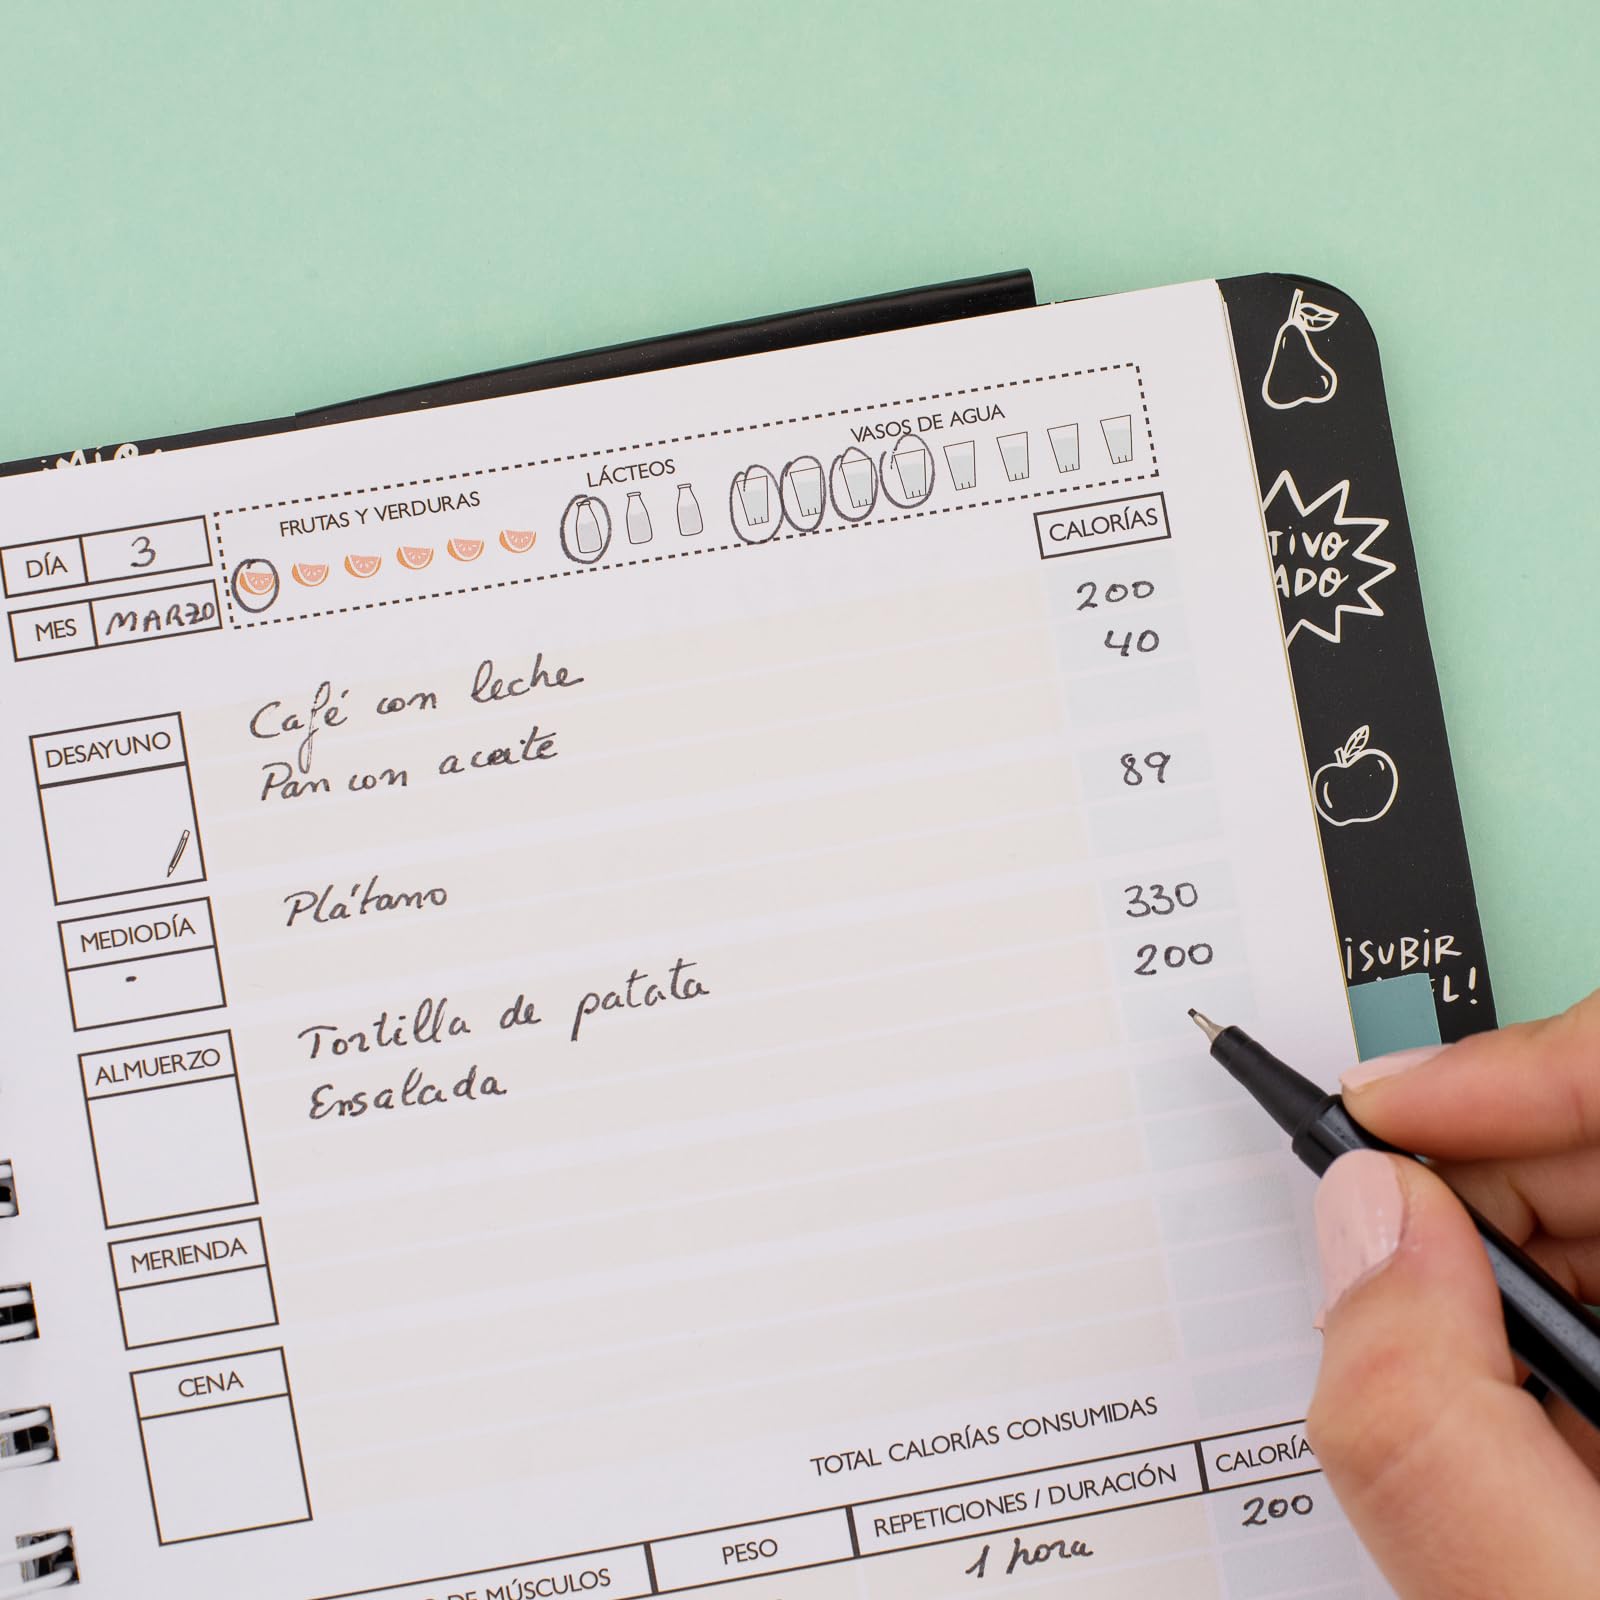 FRUTAS Y VERDURAS
LÁCTEOS
VASOS DE AGUA
DÍA 3
MES MARZO
CALORÍAS
DESAYUNO
Café con leche 200
Pan con aceite 40
MEDIODÍA
Plátano 89
ALMUERZO
Tortilla de patata 330
Ensalada 200
MERIENDA
CENA
TOTAL CALORÍAS CONSUMIDAS
DE MÚSCULOS PESO REPETICIONES / DURACIÓN CALORÍA
1 hora 200
TIVO
ADO
¡SUBIR
L!